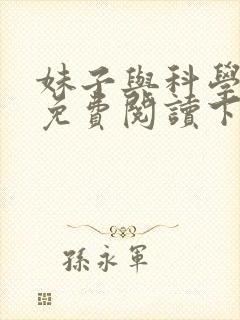 妹子與科學
免費閱讀下
孫永軍